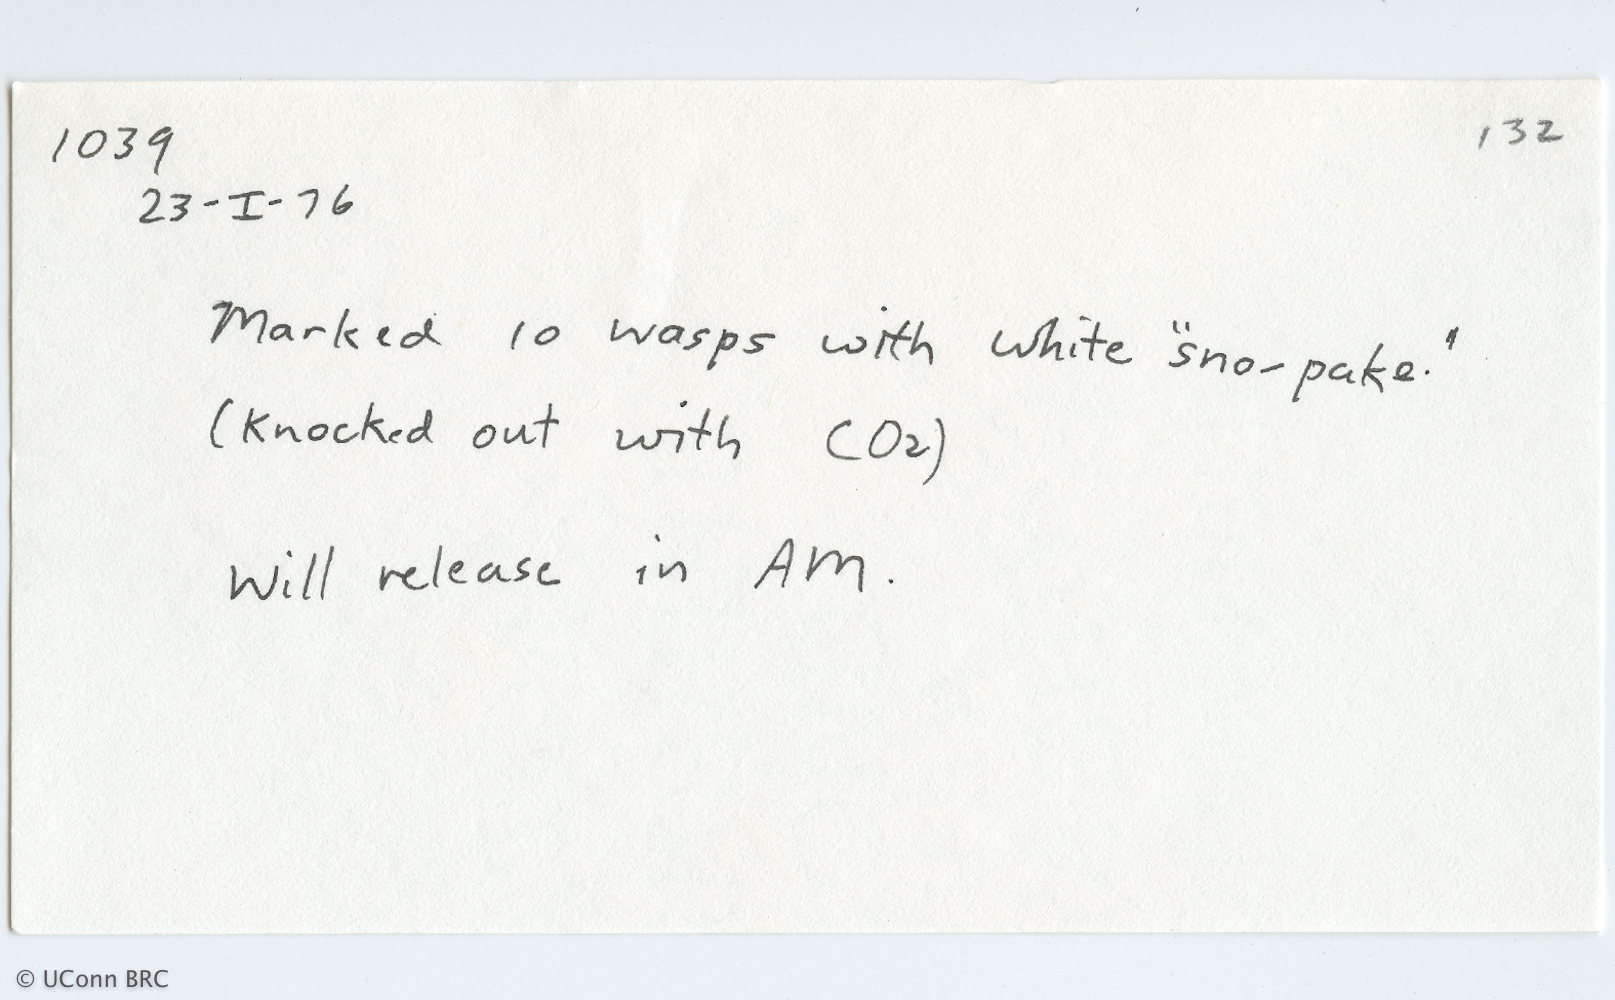 1039
132
23-I-76
Marked 10 wasps with white "sno-pake."
(Knocked out with CO2)
Will release in AM.
© UConn BRC